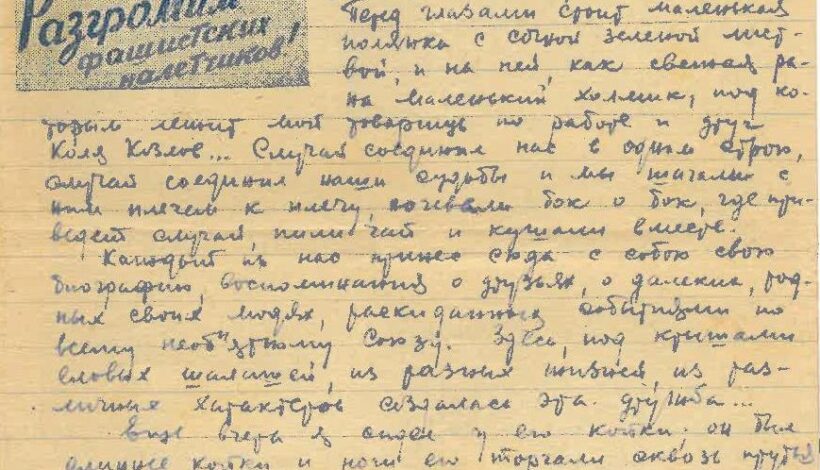 Разгромим
фашистских
налетчиков!
Перед глазами стоит маленькая
полянка с сочной зеленой лист-
вой, и на ней, как свежая ра-
на маленький холмик, под ко-
торым лежит мой товарищ по работе и друг
Коля Козлов... Случай соединил нас в одном строю,
случай соединил наши судьбы и мы шагали с
ним плечем к плечу, ночевали бок о бок, где при-
ведет случай, пили чай и кушали вместе.
Каждый из нас принес сюда с собою свою
биографию, воспоминания о друзьях, о далеких, род-
ных своих людях, раскиданных событиями по
всему необ"ятному Союзу. Здесь, под крышами
еловых шалашей, из разных жизней, из раз-
личных характеров создалась эта дружба...
Еще вчера я сидел у его койки; он был
длиннее койки и ноги его торчали сквозь прутья